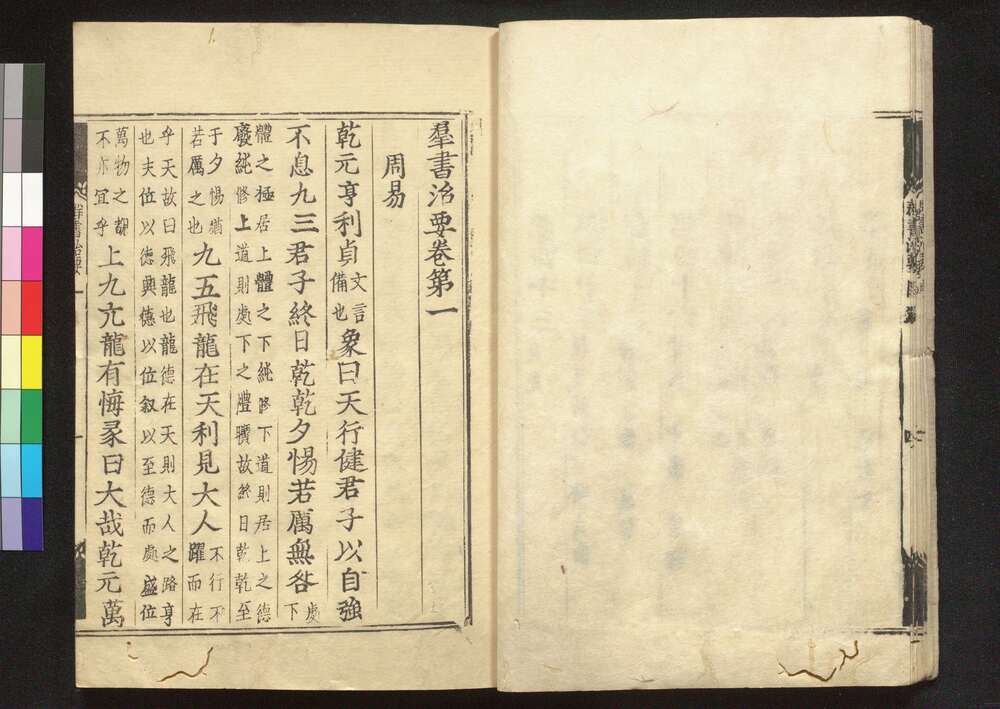 羣書治要卷第一
周易
乾元亨利貞文言備也象曰天行健君子以自強
不息九三君子終日乾乾夕惕若厲無咎處下
體之極居上體之下純脩下道則居上之德
廢純修上道則處下之禮曠故終日乾乾至
于夕惕猶若厲之也九五飛龍在天利見大人不行不躍而在
乎天故曰飛龍也龍德在天則大人之路亨
也夫位以德興德以位叙以至德而處盛位
萬物之覩不亦宜乎上九亢龍有悔彖曰大哉乾元萬
群書治要一